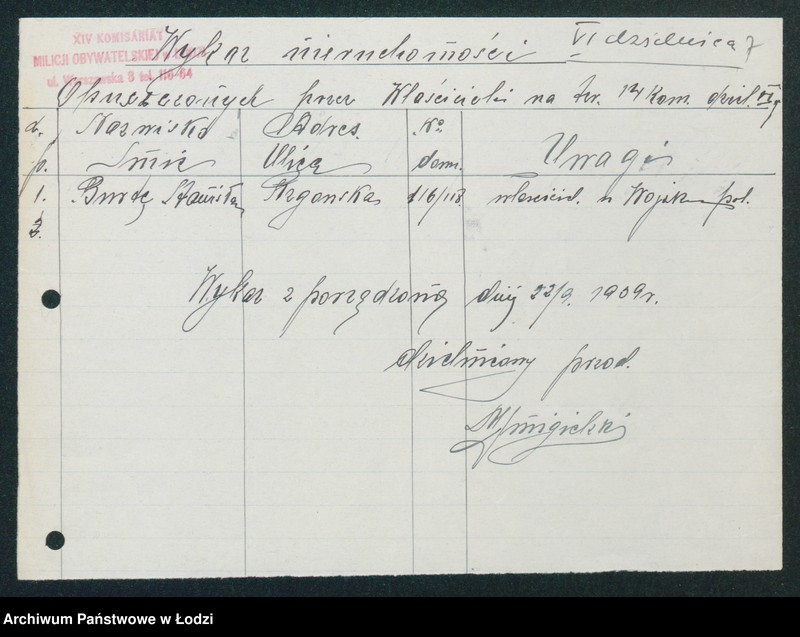 XIV KOMISARIAT
MILICJI OBYWATELSKIEJ w ŁODZI
ul. Warszawska 8 tel. 116-64
Wykaz nieruchomości VI dzielnica
Opuszczonych przez Właścicieli na ter. 14 kom. dziel. VI
L. Nazwisko Adres No
p. Imię Ulica dom. Uwagi
1. Stanisław 116/118. właściciel. w Wojsku pol.
2.
Wykaz z porządzono dnij 22/9. 1939r.
dzielnicowy przod.
Archiwum Państwowe w Łodzi